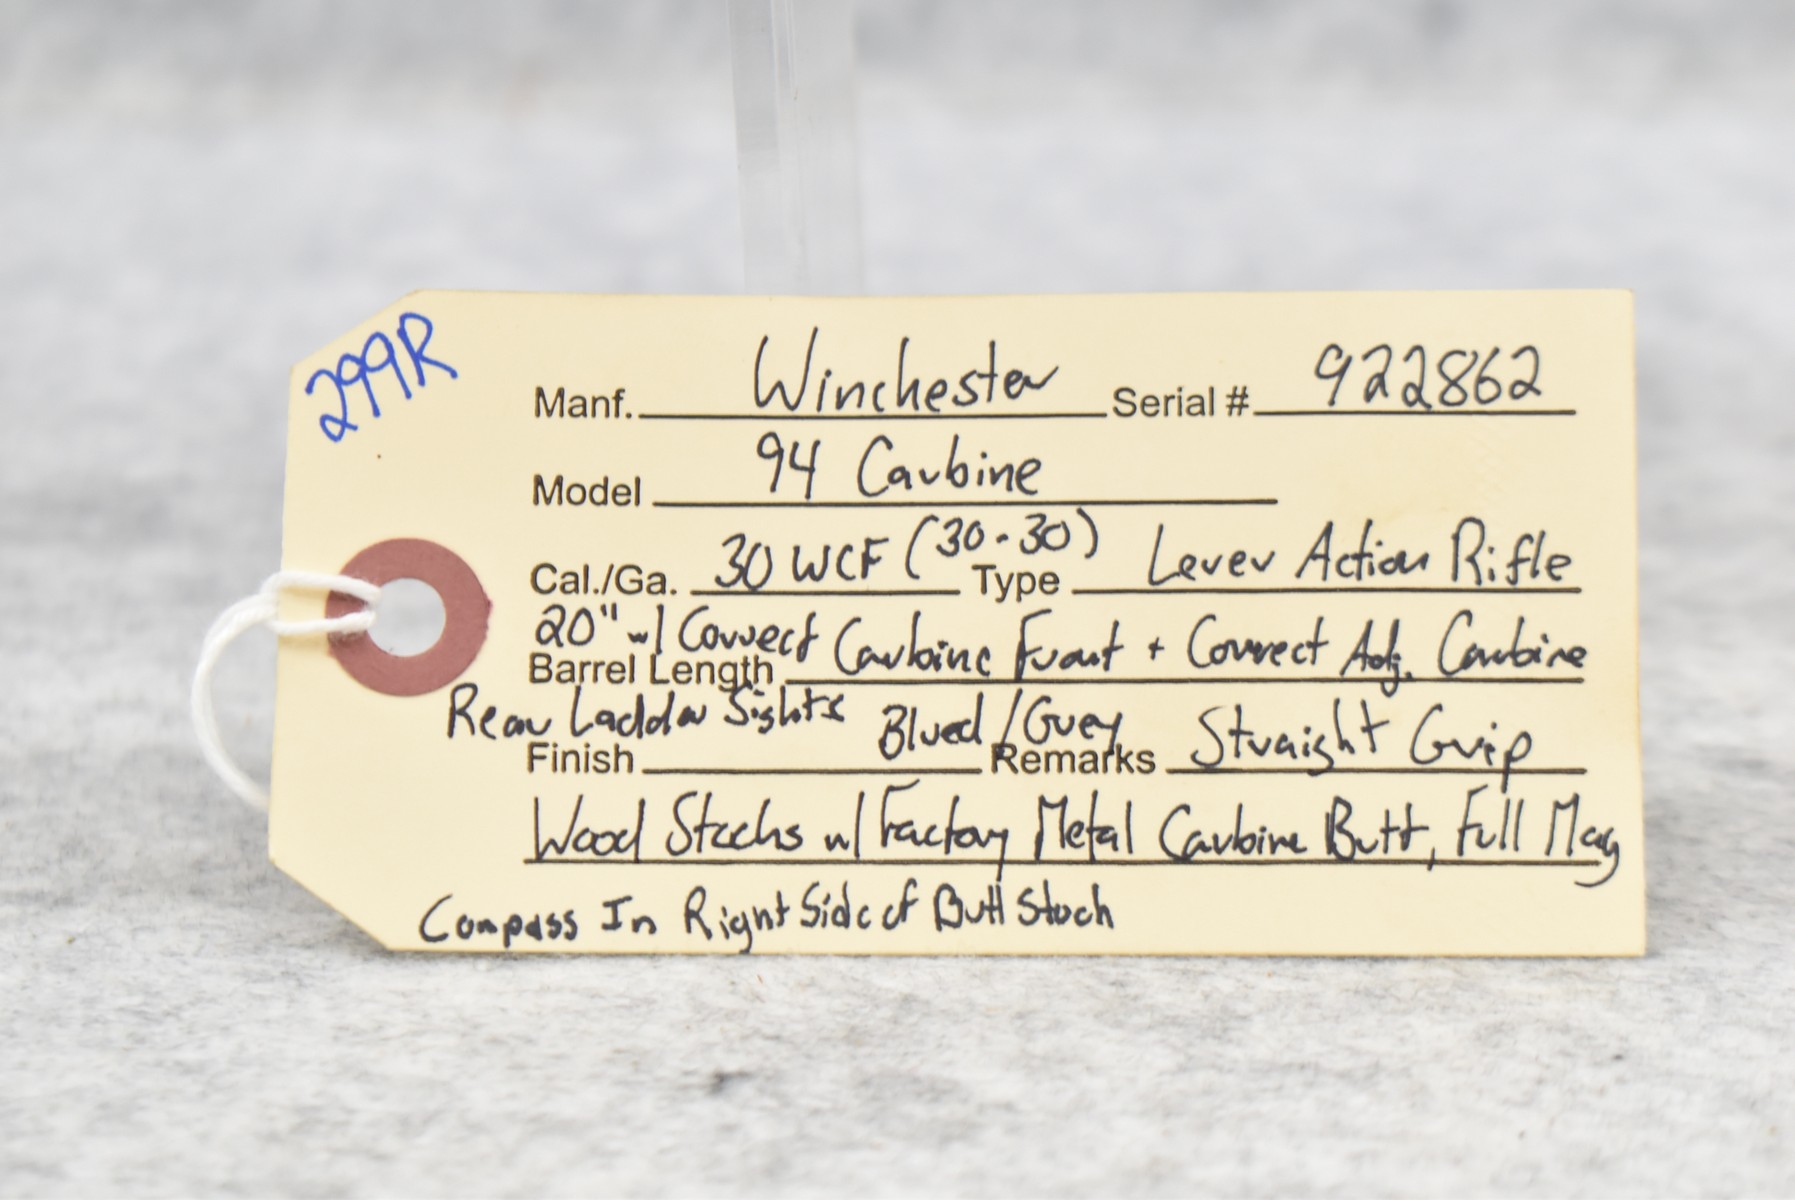 299R
Manf. Winchester Serial # 922862
Model 94 Carbine
Cal./Ga. 30 WCF (30-30) Type Lever Action Rifle
20" w/ Correct Carbine Front + Correct Adj. Carbine
Barrel Length
Rear Ladder Sights Blued/Grey Straight Grip
Finish Remarks
Wood Stocks w/ Factory Metal Carbine Butt, Full Mag
Compass In Right Side of Butt Stock